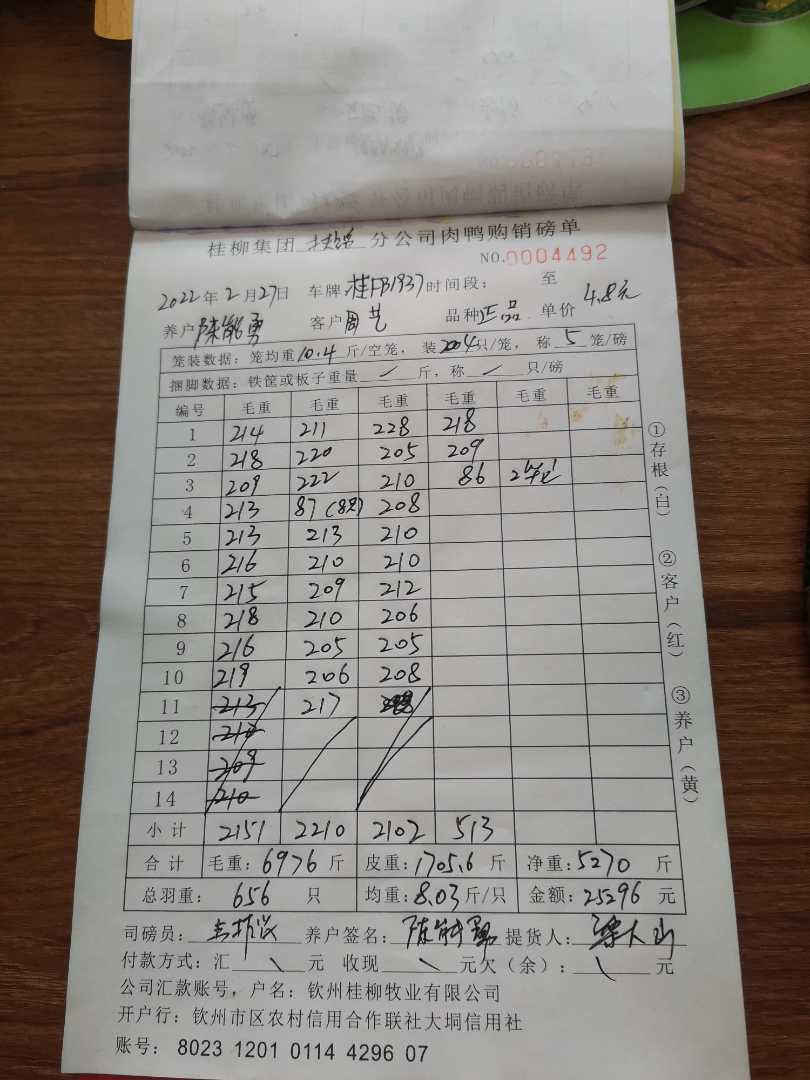 桂柳集团 分公司肉鸭购销磅单
NO.0004492
2022年2月27日 车牌桂FB1937时间段: 至
养户陈能勇 客户周艺 品种正品 单价4.8元
笼装数据:笼均重10.4斤/空笼,装204只/笼,称5笼/磅
捆脚数据:铁筐或板子重量/斤,称/只/磅
编号 毛重 毛重 毛重 毛重 毛重 毛重
1 214 211 228 218
2 218 220 205 209
3 209 222 210 86 2笼
4 213 87(8只) 208
5 213 213 210
6 216 210 210
7 215 209 212
8 218 210 206
9 216 205 205
10 219 206 208
11 213 217
12 210
13 209
14 210
小计 2151 2210 2102 513
合计 毛重:6976斤 皮重:1705.6斤 净重:5270斤
总羽重:656只 均重:8.03斤/只 金额:25296元
司磅员: 养户签名:陈能勇 提货人:
付款方式:汇\元 收现\元欠(余):\元
公司汇款账号,户名:钦州桂柳牧业有限公司
开户行:钦州市区农村信用合作联社大垌信用社
账号:8023 1201 0114 4296 07
①存根(白)
②客户(红)
③养户(黄)